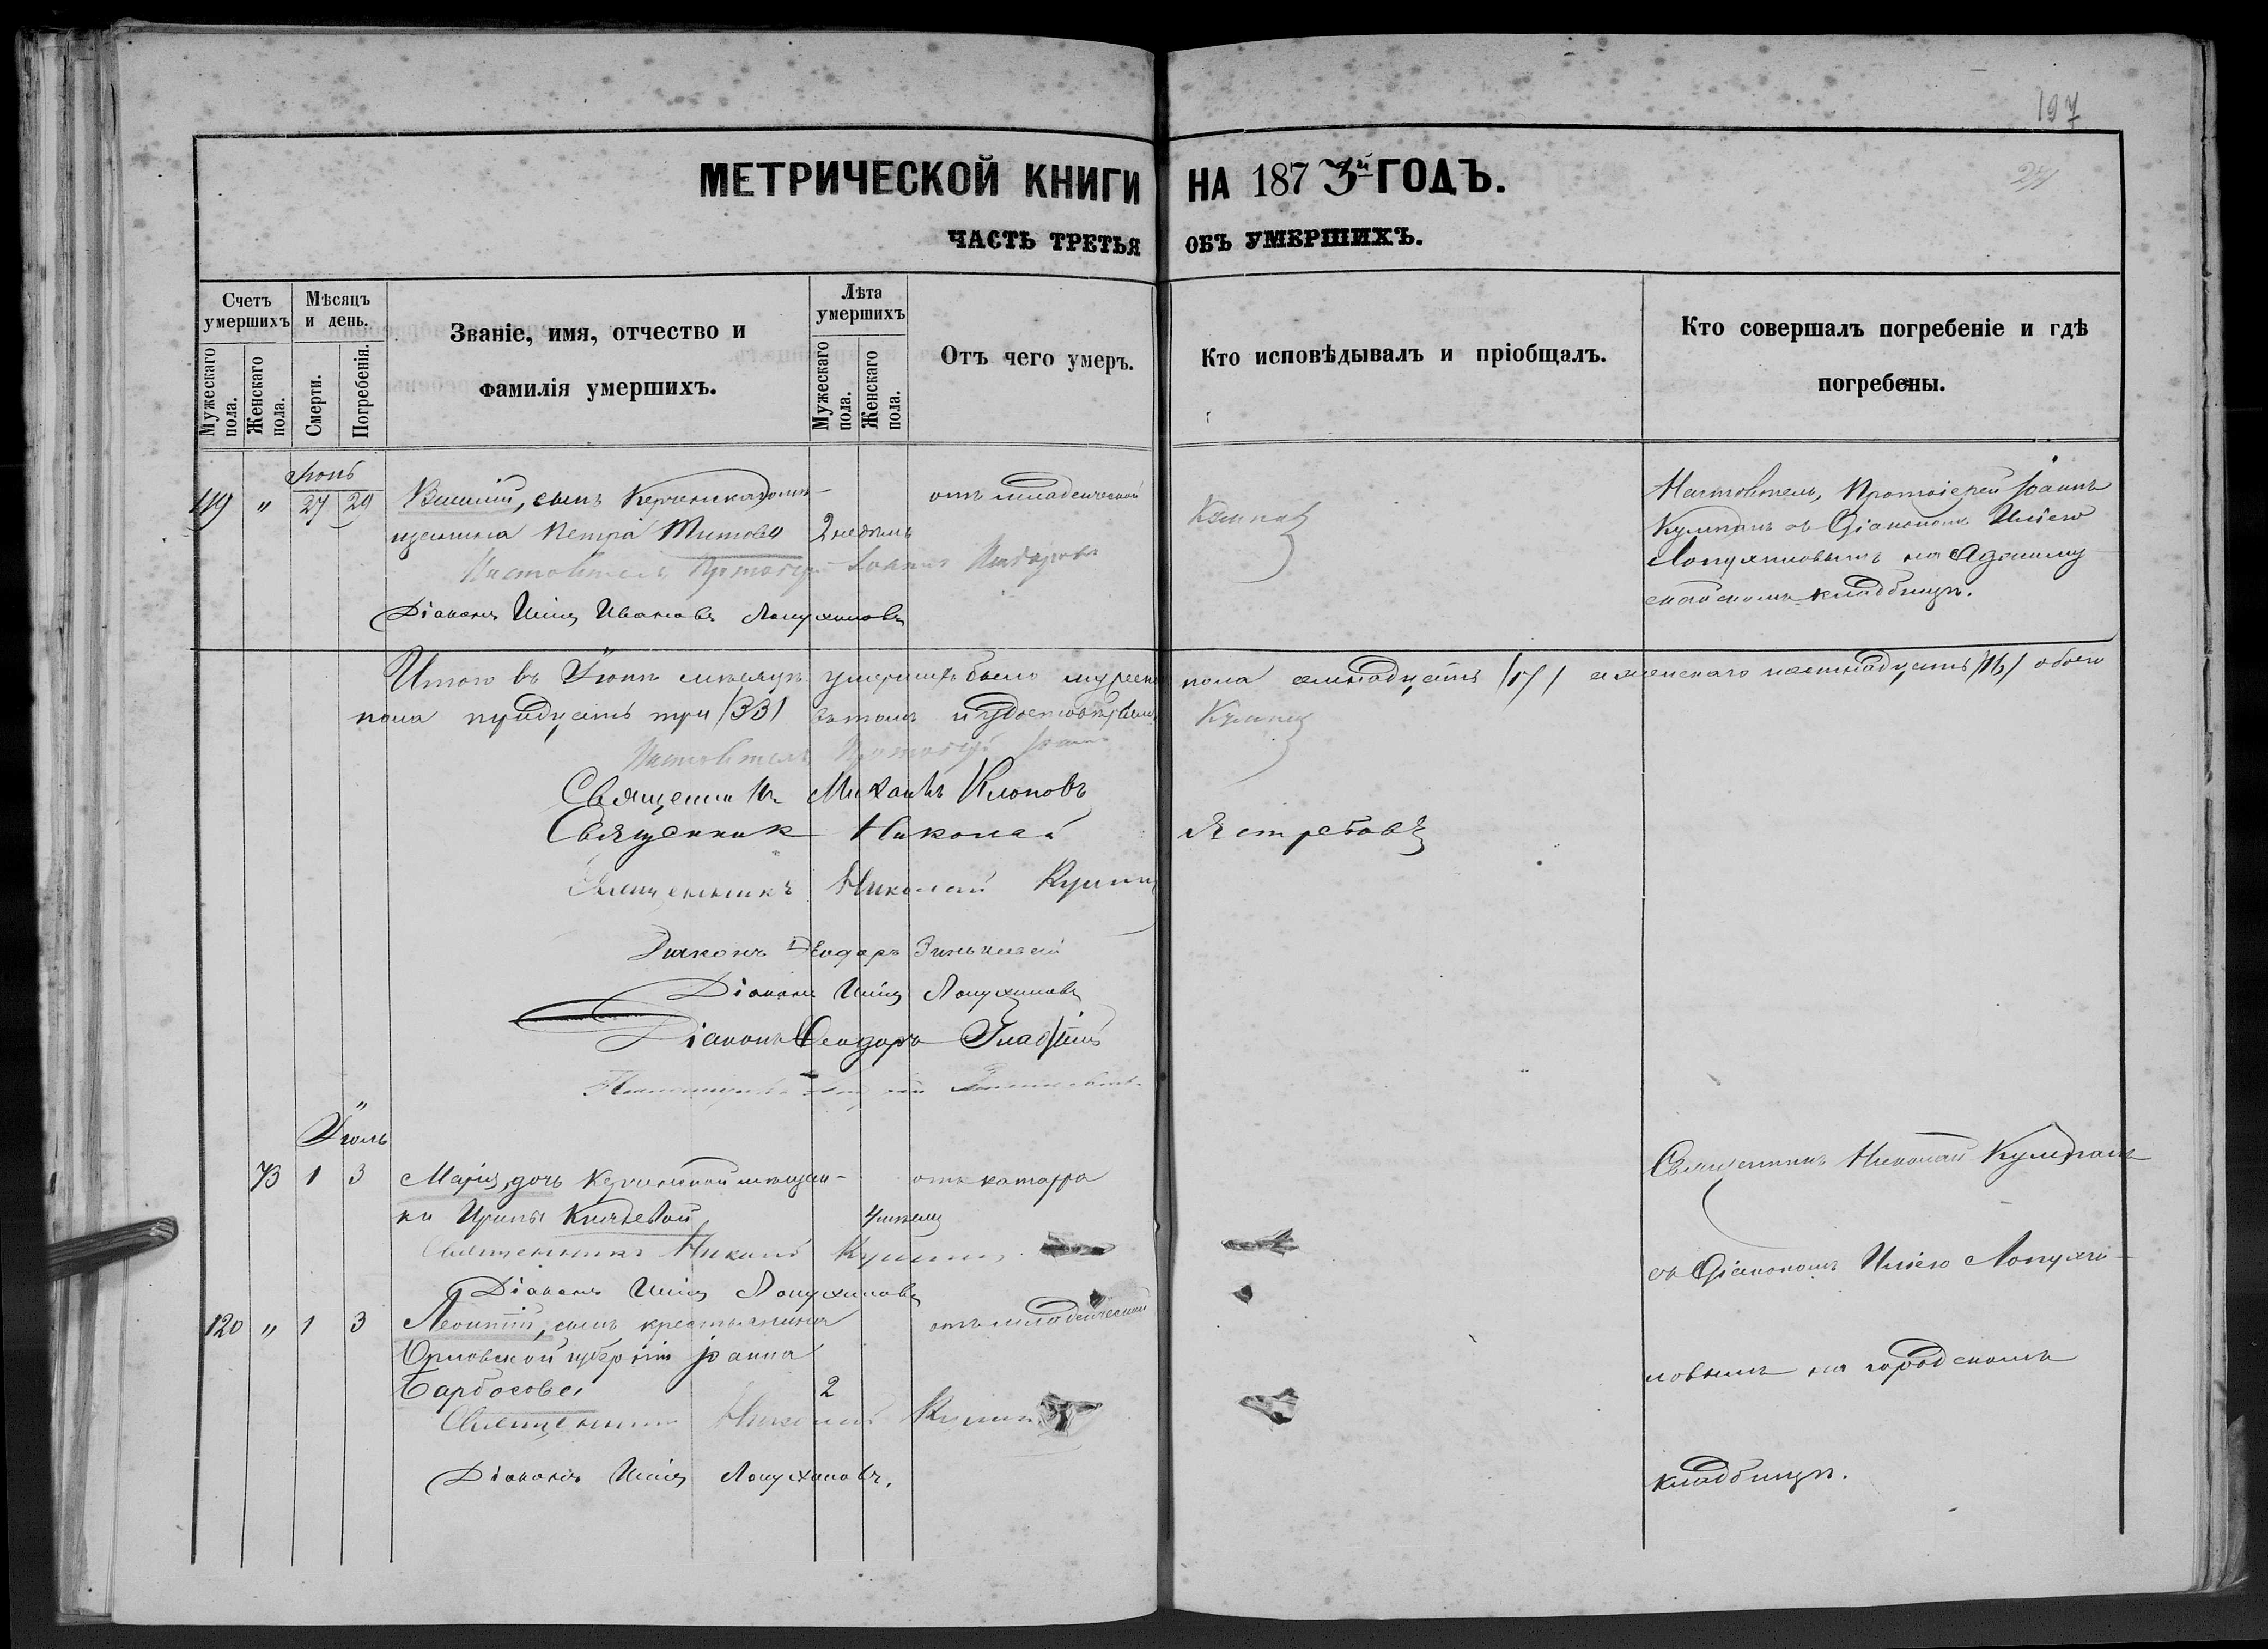 197
24
МЕТРИЧЕСКОЙ КНИГИ НА 1873й ГОДЪ.
ЧАСТЬ ТРЕТЬЯ ОБЪ УМЕРШИХЪ.
Счетъ умершихъ
Мужескаго пола.
Женскаго пола.
Мѣсяцъ и день.
Смерти.
Погребенія.
Званіе, имя, отчество и
фамилія умершихъ.
Лѣта умершихъ
Мужескаго пола.
Женскаго пола.
Отъ чего умеръ.
Кто исповѣдывалъ и пріобщалъ.
Кто совершалъ погребеніе и гдѣ
погребены.
Іюнь
119 " 27 29 сынъ отъ младенческой
щанина Петра Титова 2 недѣль
Настоятель Протоіерей Іоаннъ
Діаконъ Илія Ивановъ Лопухиновъ
Настоятель, Протоіерей Іоаннъ
съ Діакономъ Иліею
Лопухиновымъ на
кладбищѣ.
Итого въ Іюнѣ мѣсяцѣ умершихъ было мужеска пола семнадцать /17/ а женскаго шестнадцать /16/ обоего
пола тридцать три /33/ въ томъ и удостовѣряемъ
Настоятель Протоіерей Іоаннъ
Священникъ Михаилъ Клоповъ
Священникъ Николай Ястребовъ
Священникъ Николай
Діаконъ Ѳеодоръ
Діаконъ Илія Лопухиновъ
Діаконъ Ѳеодоръ
Іюль
73 1 3 Марія, дочь Керченской мѣщан- отъ катарра
ки Ирины Князевой 4 мѣсяц
Священникъ Николай
Діаконъ Илія Лопухиновъ
120 " 1 3 Леонтій, сынъ крестьянина отъ младенческой
Орловской губерніи Іоанна
Барбосова 2
Священникъ Николай
Діаконъ Илія Лопухиновъ.
Священникъ Николай
съ Діакономъ Иліею Лопухи-
новымъ на городскомъ
кладбищѣ.